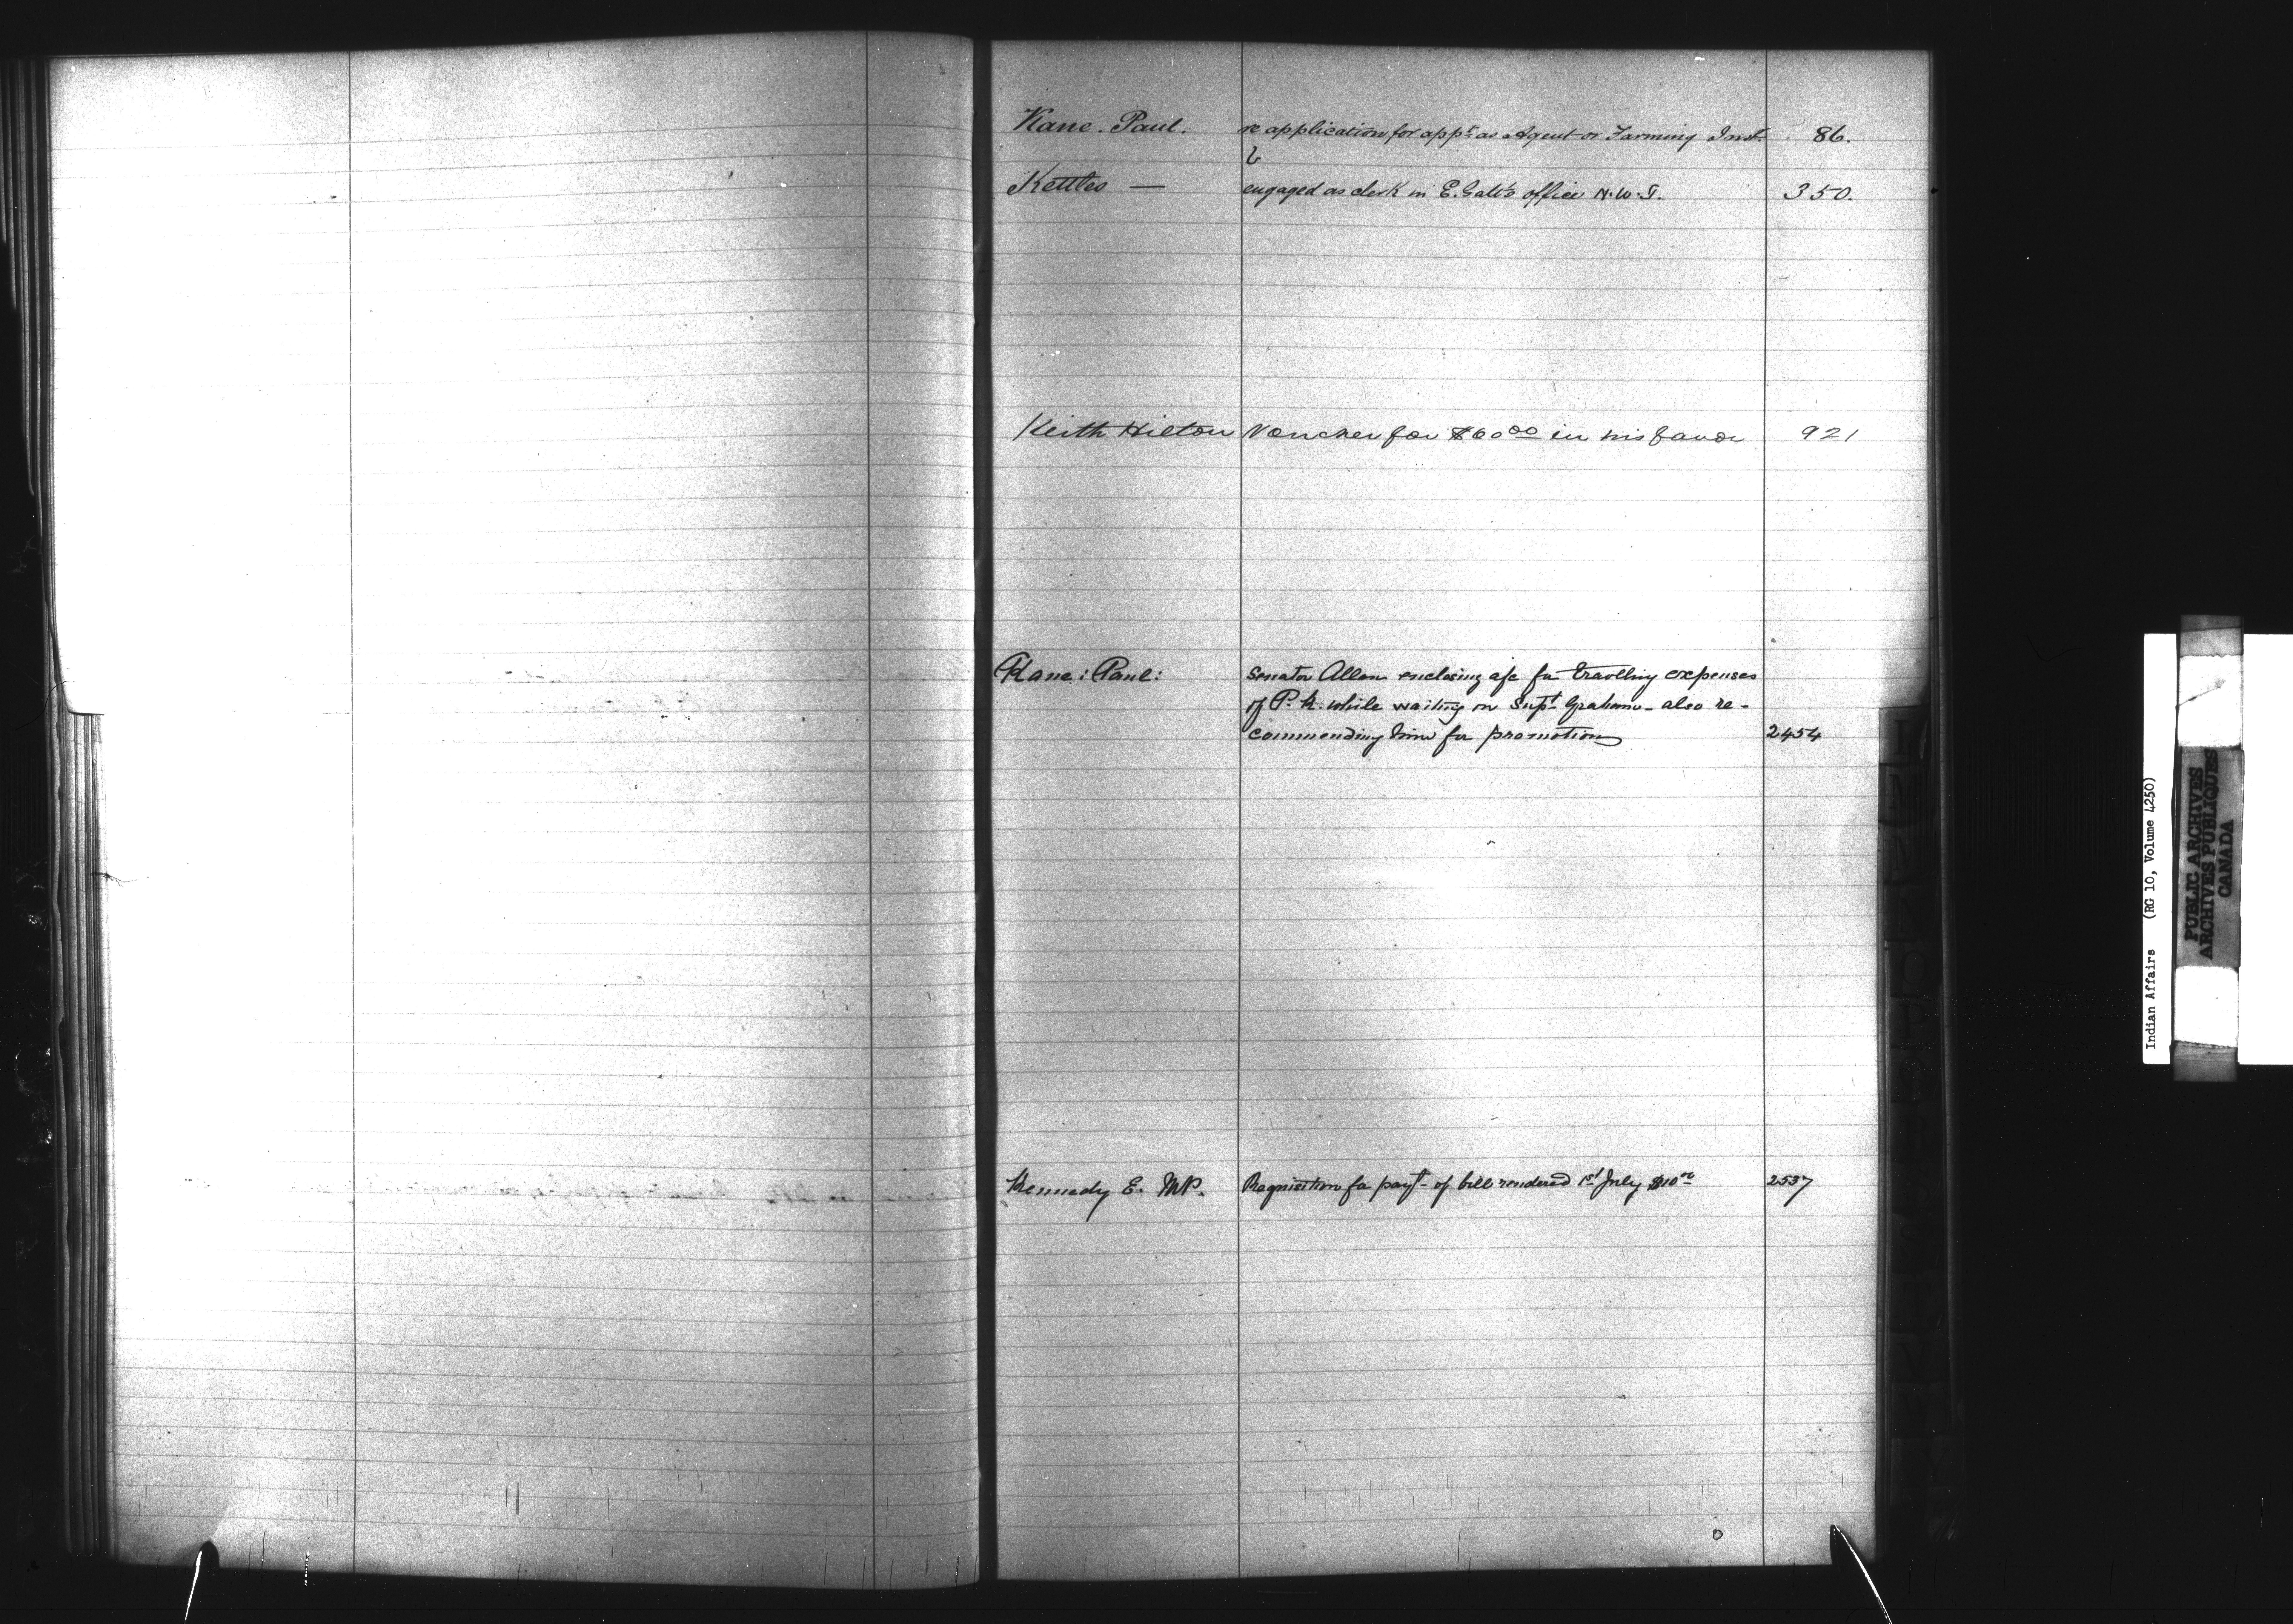 Kane. Paul. re application for appt. as Agent or Farming Inst. 86.
Kettles — engaged as clerk in E. Galt's office N.W.T. 350.
Keith Hilton Voucher for $60 00 in his favor 921
Kane: Paul: Senator Allan enclosing a/c for travelling expenses
of P. K. while waiting on Supt. Graham - also re-
commending him for promotion 2454
Kennedy E. MP. Requisition for payt. of bill rendered 1st July $10 00 2537
L
M
N
O
P
Indian Affairs (RG 10, Volume 4250)
PUBLIC ARCHIVES
ARCHIVES PUBLIQUES
CANADA